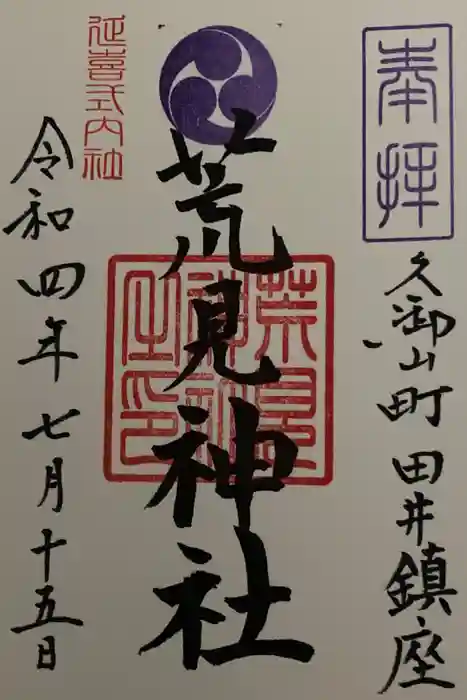 奉拝
久御山町田井鎮座
荒見神社
荒見神社之印
延喜式内社
令和四年七月十五日